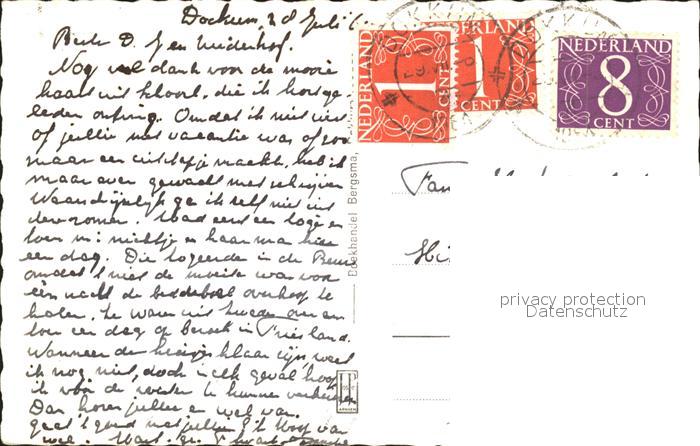 Dockum, 28 Juli
Beste D. J en
Nog veel dank voor de mooie
kaart uit die ik kortge-
leden ontving. Omdat ik niet wist
of jullie met vacantie was of zoo
maar een uitstapje maakt, heb ik
maar even gewacht met schrijven
Waarschijnlijk ga ik zelf niet uit
deze zomer. Had eerst een logé en
toen m'n nichtje en haar ma hier
een dag. Die logeerde in de
omdat 't niet de moeite was voor
één nacht de beddeboel overhoop te
halen. Ze waren uit Zweden over en
toen een dag op bezoek in Friesland.
Wanneer de huisjes klaar zijn, weet
ik nog niet, doch in elk geval hoop
ik vóór de winter te kunnen verhuizen
Dan horen jullie er wel van.
gaat 't goed met jullie? Ik hoop van
wel. Hart. gr.
Boekhandel Bergsma,
NEDERLAND
1
CENT
NEDERLAND
1
CENT
NEDERLAND
8
CENT
Fam
Hi
privacy protection
Datenschutz